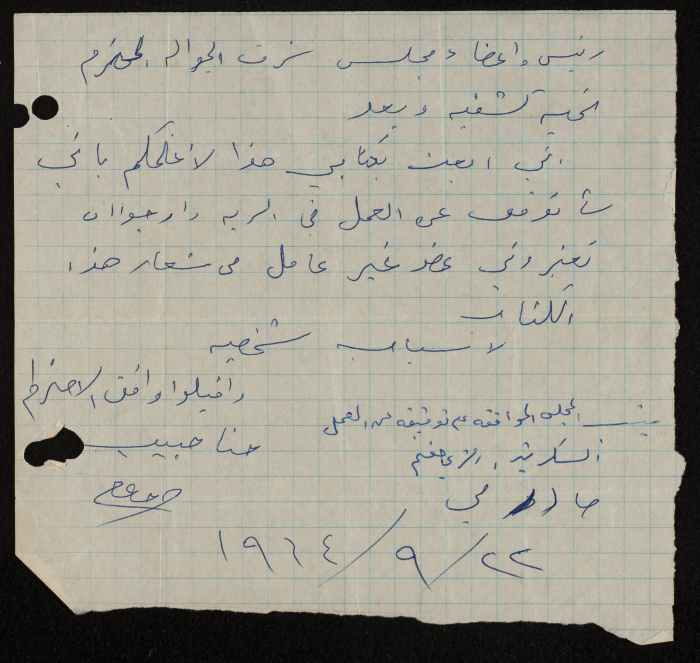 رئيس واعضاء مجلس شرف الجواله المحترم
تحية كشفيه وبعد
اني ابعث بكتابي هذا لأعلمكم باني
سأتوقف عن العمل في الرهط وارجو ان
تعتبروني عضو غير عامل من شعار هذا
الكتاب
لاسباب شخصيه
واقبلوا وافق الاحترام
حنا حبيب
المجلس الموافقه على توقيفه عن العمل
السكرتير
٢٢ / ٩ / ١٩٦٤